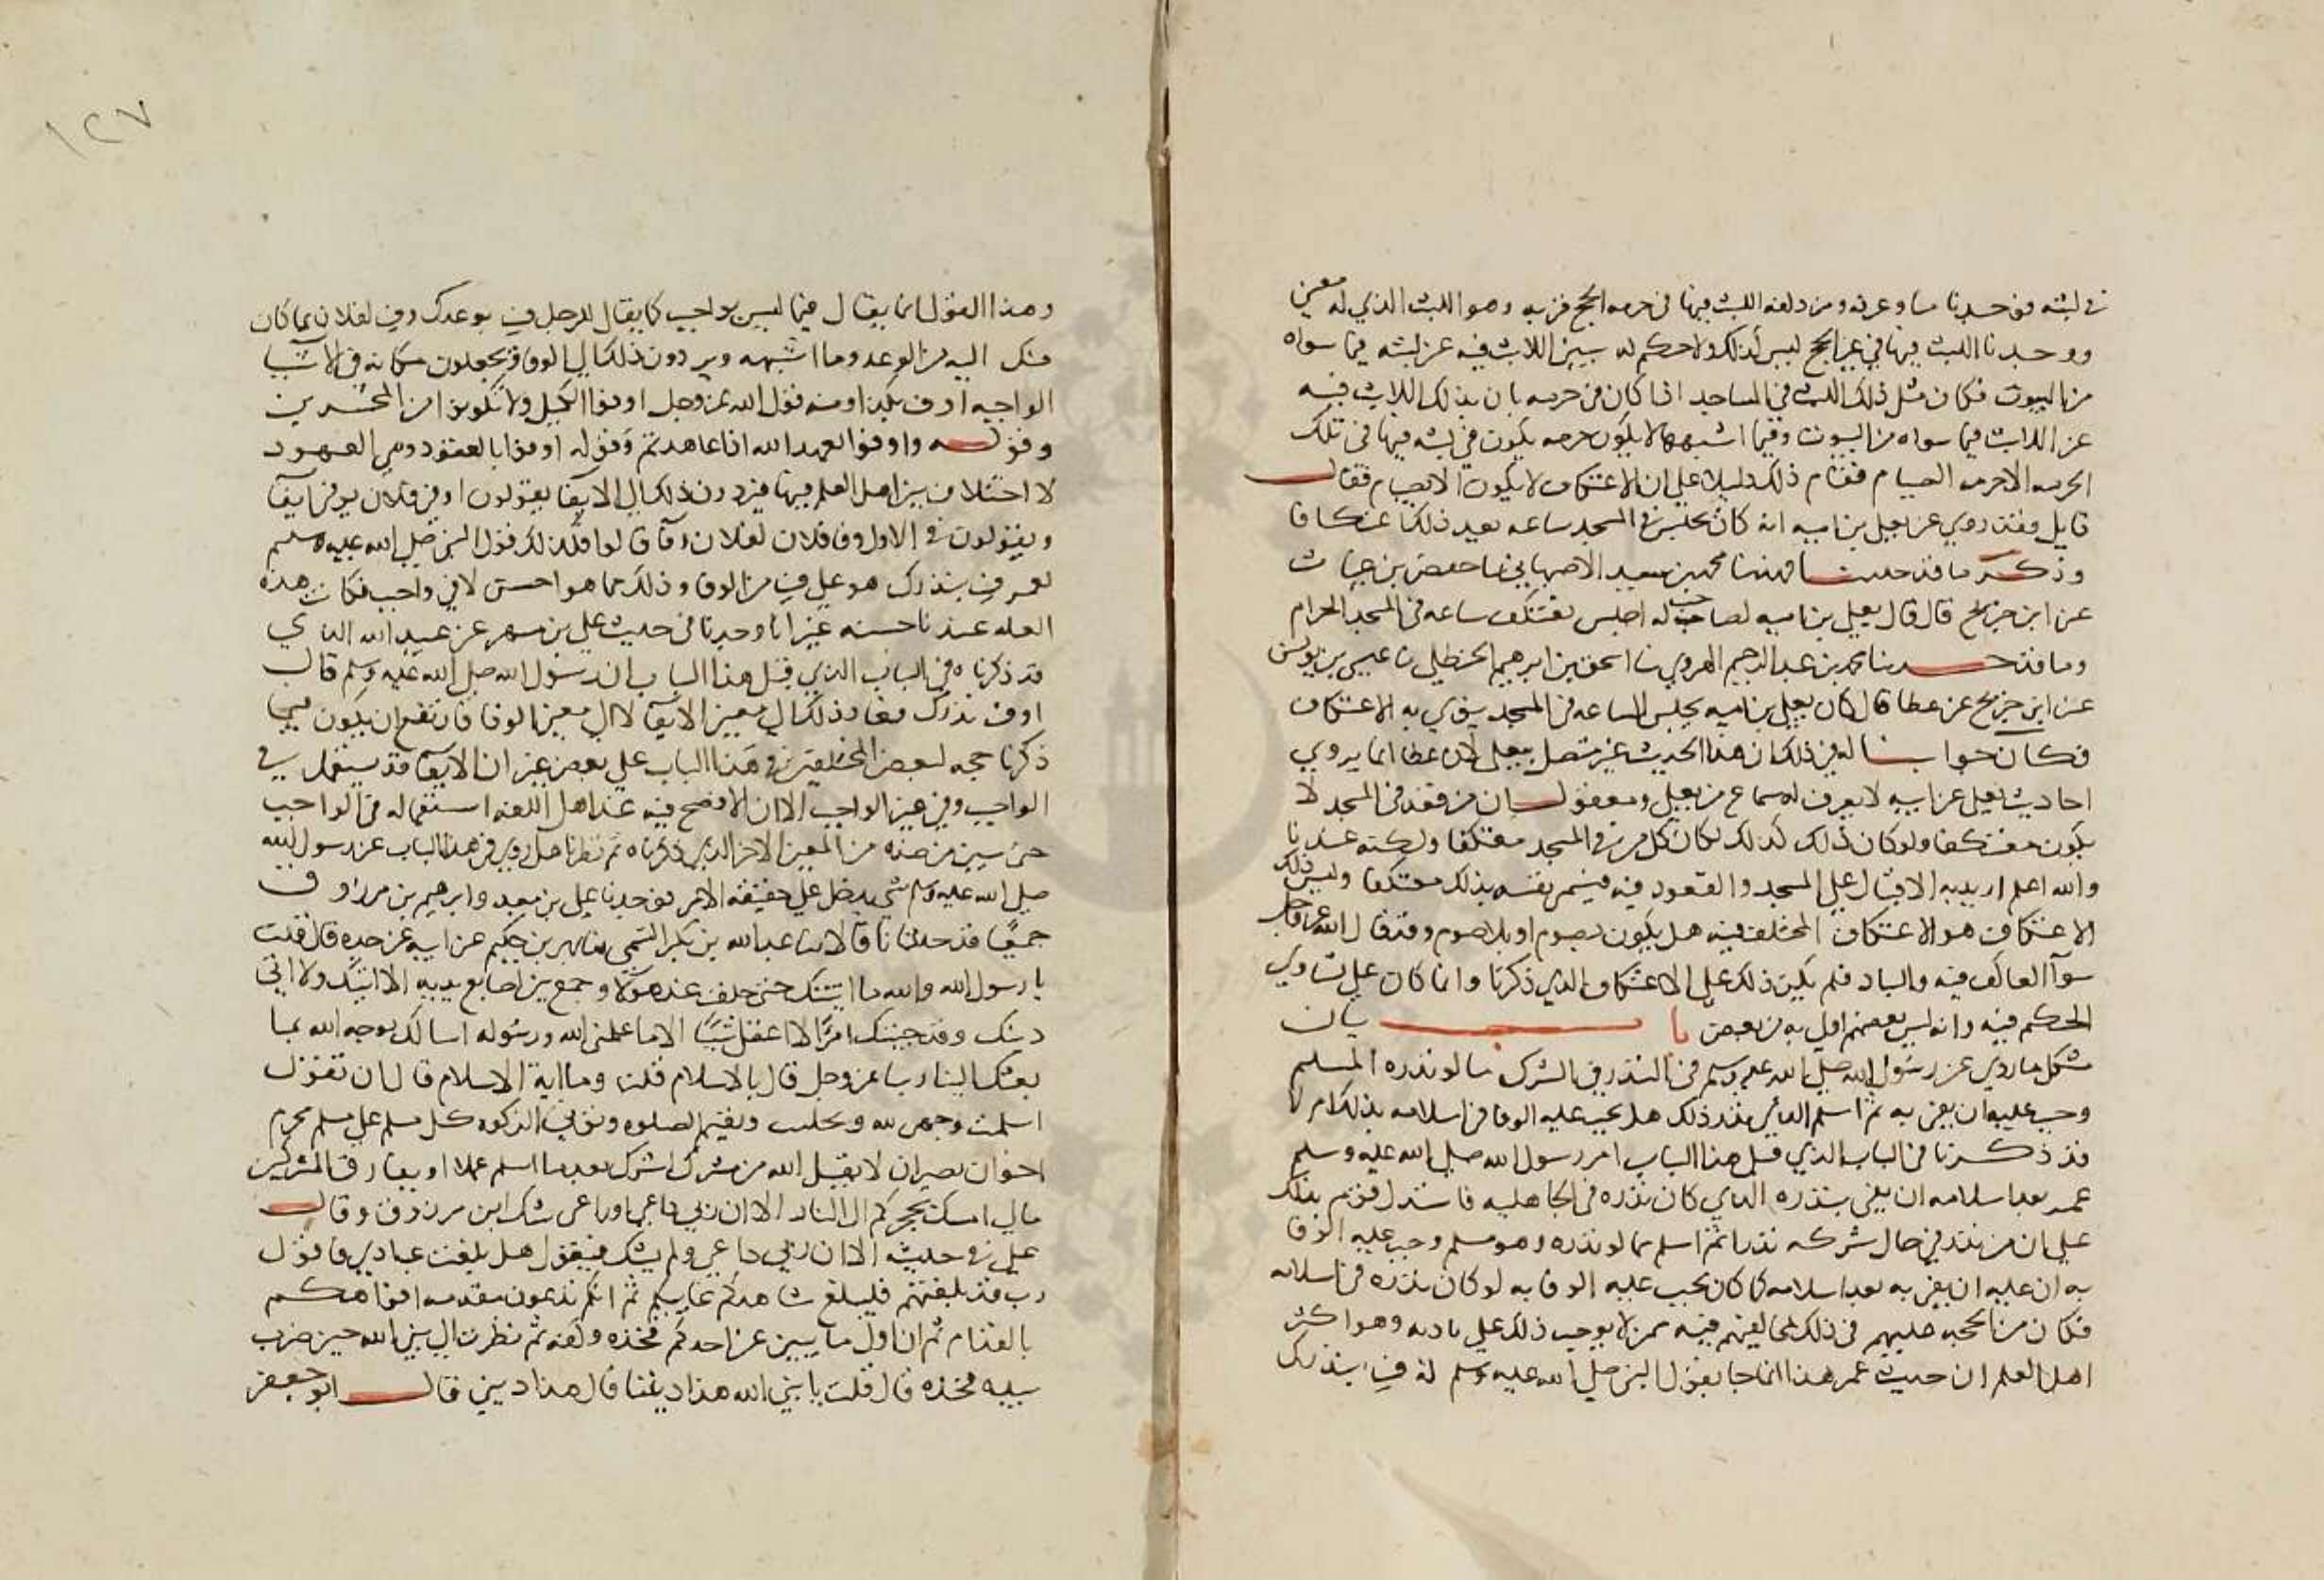 في لبثه فوجدنا منا وعرفه ومزدلفه اللبث فيها في حرمه الحج قربه وهو اللبث الذي له معنى
ووجدنا اللبث فيها في غير الحج ليس كذلك ولا حكم له يبين اللابث فيه عن لبثه فيما سواه
من البيوت فكان مثل ذلك اللبث في المساجد اذا كان في حرمه بان بذلك اللابث فيه
عن اللابث فيما سواه من البيوت وفيما اشبهها لا يكون حرمه يكون في لبثه فيها في تلك
الحرمه الا حرمه الصيام فقام ذلك دليلا على ان الاعتكاف لا يكون الا بصيام فقال
قايل وفقد روي عن يعلى بن اميه انه كان يجلس في المسجد ساعه يعد ذلك اعتكافا
وذكر ما قد حدثنا فهد نا محمد بن سعيد الاصبهاني نا حفص بن غياث
عن ابن جريج قال قال يعلى بن اميه لصاحب له اجلس نعتكف ساعه في المسجد الحرام
وما قد حدثنا محمد بن عبد الرحيم الهروي نا اسحق بن ابرهيم الحنظلي نا عيسى بن يونس
عن ابن جريج عن عطا قال كان يعلى بن اميه يجلس الساعه في المسجد ينوي به الاعتكاف
فكان جوابنا له في ذلك ان هذا الحديث غير متصل بيعلى لان عطا انما يروي
احاديث يعلى عن ابيه لا يعرف له سماع من يعلى ومعقول ان من قعد في المسجد لا
يكون معتكفا ولو كان ذلك كذلك لكان كل من في المسجد معتكفا ولكنه عندنا
والله اعلم اريد به الاقبال على المسجد والقعود فيه فيسمى نفسه بذلك معتكفا وليس ذلك
الاعتكاف هو الاعتكاف المختلف فيه هل يكون بصوم او بلا صوم وقد قال الله عز وجل
سوآ العاكف فيه والباد فلم يكن ذلك على الاعتكاف الذي ذكرنا وانما كان على تساوي
الحكم فيه وانه ليس بعضهم اولى به من بعض باب بيان
مشكل ما روي عن رسول الله صلى الله عليه وسلم في النذر في الشرك مما لو نذره المسلم
وجب عليه ان يفي به ثم اسلم الناذر بعد ذلك هل يجب عليه الوفا في اسلامه بذلك ام لا
قد ذكرنا في الباب الذي قبل هذا الباب امر رسول الله صلى الله عليه وسلم
عمر بعد اسلامه ان يفي بنذره الذي كان نذره في الجاهليه فاستدل قوم بذلك
على ان من نذر في حال شركه نذرا ثم اسلم مما لو نذره وهو مسلم وجب عليه الوفا
به ان عليه ان يفي به بعد اسلامه كما كان يجب عليه الوفا به لو كان نذره في اسلامه
فكان من الحجه عليهم في ذلك لمخالفيهم فيه ممن لا يوجب ذلك على ناذره وهو اكثر
اهل العلم ان حديث عمر هذا انما جا بقول النبي صلى الله عليه وسلم له فِ بنذرك
١٢٧
وهذا القول انما يقال فيما ليس بواجب كما يقال للرجل فِ بوعدك وفِ لفلان بما كان
منك اليه من الوعد وما اشبهه ويردون ذلك الى الوفا ويجعلون مكانه في الاشيا
الواجبه اوف بكذا ومنه قول الله عز وجل اوفوا الكيل ولا تكونوا من المخسرين
وقوله واوفوا بعهد الله اذا عاهدتم وقوله اوفوا بالعقود وهي العهود
لا اختلاف بين اهل العلم فيها فيردون ذلك الى الايفا يقولون اوفى فلان يوفي ايفآ
ويقولون في الاول وفا فلان لفلان وفآ قالوا فلذلك قول النبي صلى الله عليه وسلم
لعمر فِ بنذرك هو على فِ من الوفا وذلك مما هو احسن لا في واجب فكانت هذه
العله عندنا حسنه غير انا وجدنا في حديث علي بن مسهر عن عبيد الله الذي
قد ذكرناه في الباب الذي قبل هذا الباب ان رسول الله صلى الله عليه وسلم قال
اوف بنذرك فعاد ذلك الى معنى الايفآ لا الى معنى الوفا فارتفع ان يكون فيما
ذكرنا حجه لبعض المختلفين في هذا الباب على بعض غير ان الايفآ قد يستعمل في
الواجب وفي غير الواجب الا ان الافصح فيه عند اهل اللغه استعماله في الواجب
حتى يبين من ضده من المعنى الاخر الذي ذكرناه ثم نظرنا هل روي في هذا الباب عن رسول الله
صلى الله عليه وسلم شي يدخل على حقيقه الامر فوجدنا علي بن معبد وابرهيم بن مرزوق
جميعا قد حدثانا قالا نا عبد الله بن بكر السهمي نا بهز بن حكيم عن ابيه عن جده قال قلت
يا رسول الله والله ما اتيتك حتى حلفت عدد هولآ وجمع بين اصابع يديه الا اتيك ولا اتي
دينك وقد جيتك امرًا لا اعقل شيًا الا ما علمني الله ورسوله اسالك بوجه الله بما
بعثك الينا ربنا عز وجل قال بالاسلام قلت وما اية الاسلام قال ان تقول
اسلمت وجهي لله وتخليت وتقيم الصلوه وتوتي الزكوه كل مسلم على مسلم محرم
اخوان نصيران لا يقبل الله من مشرك اشرك بعد ما اسلم عملا او يفارق المشركين
مالي امسك بحجزكم الى النار الا ان ربي داعي او راعي شك ابن مرزوق وقال
علي في حديثه الا ان ربي داعي ولم يشك فيقول هل بلغت عبادي فاقول
رب قد بلغتهم فليبلغ شاهدكم غايبكم ثم انكم تدعون مقدمه افواهكم
بالفدام ثم ان اول ما يبين عن احدكم فخذه وكفه ثم نظرت الى نبي الله حين ضرب
بيده فخذه قال قلت يا نبي الله هذا ديننا قال هذا دينك قال ابو جعفر